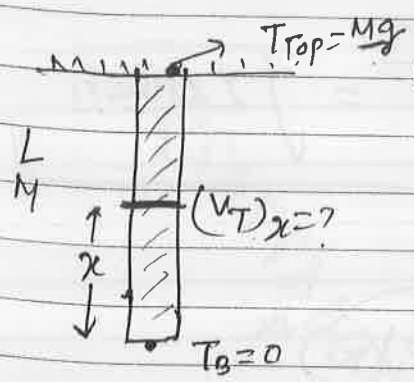 T_Top = Mg
L
M
(V_T)_x = ?
x
T_B = 0